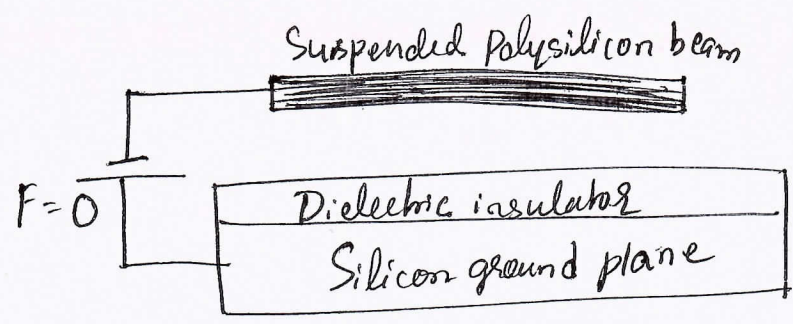 Suspended Polysilicon beam
F=0
Dielectric insulator
Silicon ground plane